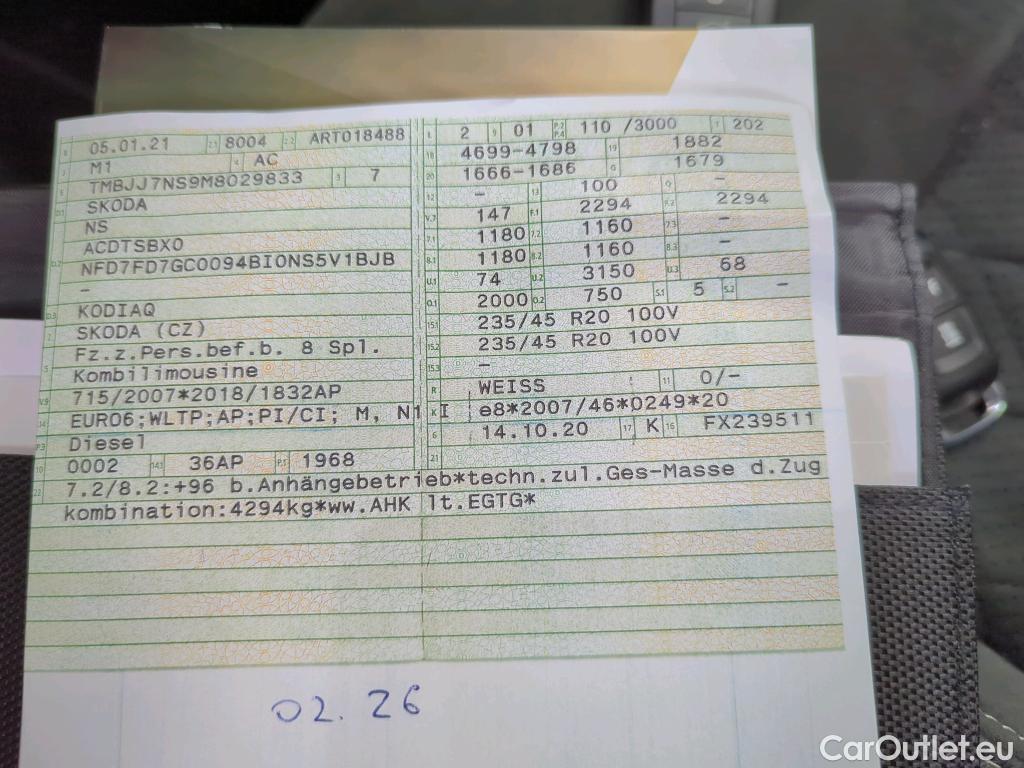 05.01.21 8004 ART018488
M1 AC
TMBJJ7NS9M8029833 7
SKODA
NS
ACDTSBX0
NFD7FD7GC0094BI0NS5V1BJB
–
KODIAQ
SKODA (CZ)
Fz.z.Pers.bef.b. 8 Spl.
Kombilimousine
715/2007*2018/1832AP
EURO6;WLTP;AP;PI/CI; M, N1 I
Diesel
0002 14.1 36AP P.1 1968
L 2 9 01 P.2 P.4 110 /3000 T 202
18 4699-4798 19 1882
20 1666-1686 G 1679
12 – 13 100 Q –
V.7 147 F.1 2294 F.2 2294
7.1 1180 7.2 1160 7.3 –
8.1 1180 8.2 1160 8.3 –
U.1 74 U.2 3150 U.3 68
O.1 2000 O.2 750 S.1 5 S.2 –
15.1 235/45 R20 100V
15.2 235/45 R20 100V
15.3 –
R WEISS 11 0/-
K e8*2007/46*0249*20
6 14.10.20 17 K 16 FX239511
21
22 7.2/8.2:+96 b.Anhängebetrieb*techn.zul.Ges-Masse d.Zug
kombination:4294kg*ww.AHK lt.EGTG*
02. 26
CarOutlet.eu